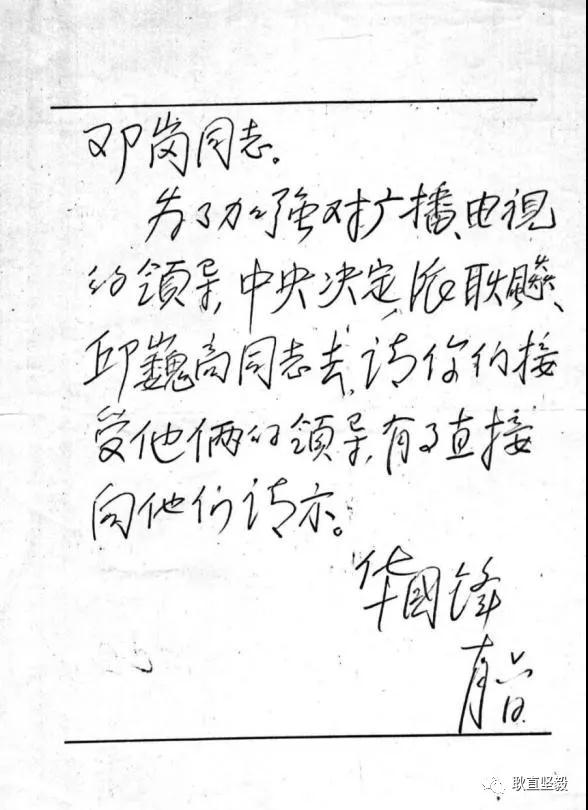 邓岗同志。
为了加强对广播、电視
的領导，中央决定，派耿飈、
邱巍高同志去，请你们接
受他俩的領导，有事直接
向他们请示。
华國锋
十月六日
耿直坚毅